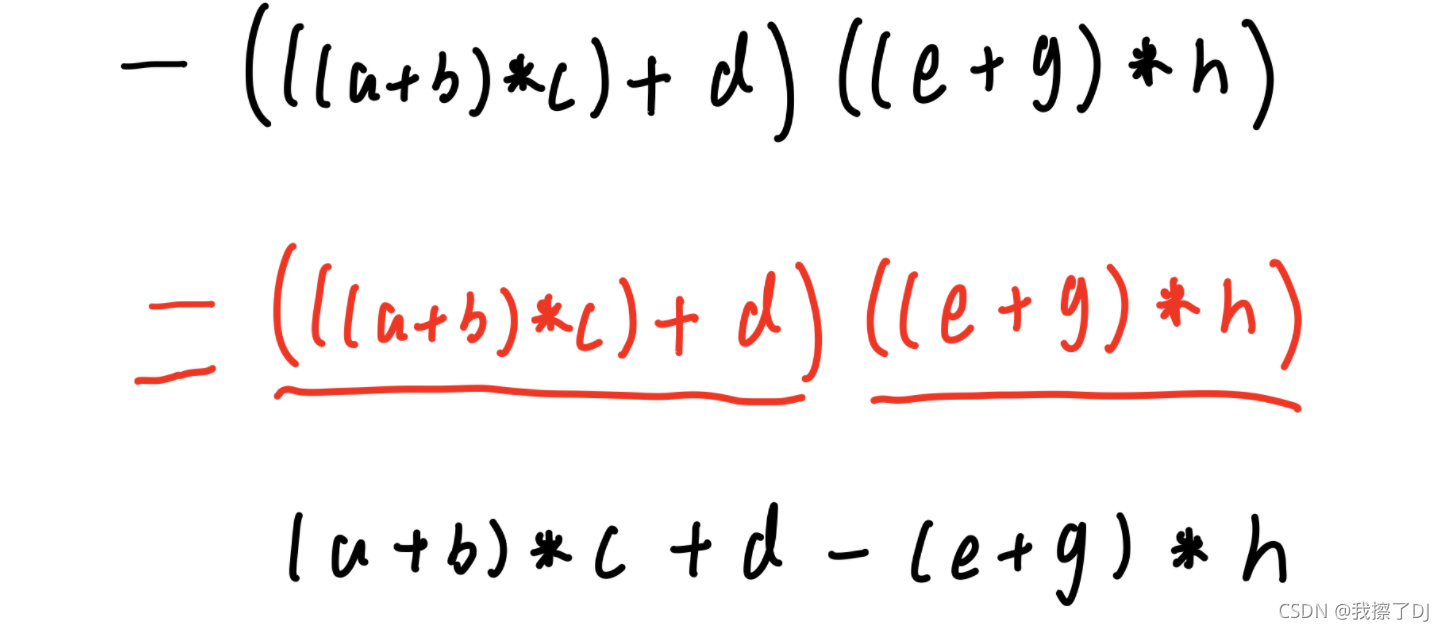 - (((a+b)*c)+d) ((e+g)*h)
= (((a+b)*c)+d) ((e+g)*h)
(a+b)*c+d-(e+g)*h
CSDN @我擦了DJ